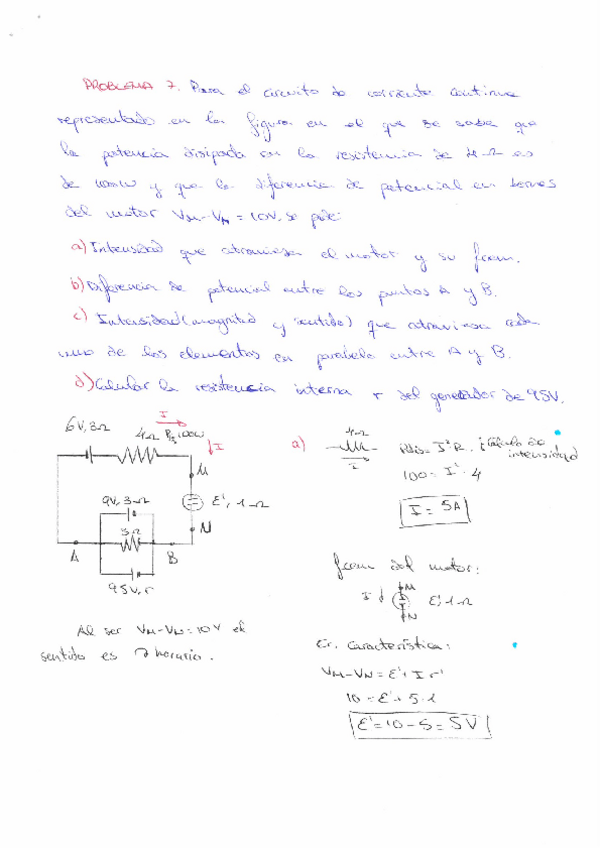 PROBLEMA 7. Para el circuito de corriente continua
representado en la figura en el que se sabe que
la potencia disipada en la resistencia de 4Ω es
de 100W y que la diferencia de potencial en bornes
del motor VM-VN = 10V, se pide:
a) Intensidad que atraviesa el motor y su fcem.
b) Diferencia de potencial entre los puntos A y B.
c) Intensidad (magnitud y sentido) que atraviesa cada
uno de los elementos en paralelo entre A y B.
d) Calcular la resistencia interna r del generador de 95V.
I
6V, 3Ω
4Ω P=100W
I
M
E', 1Ω
N
9V, 3Ω
3Ω
A
B
95V, r
Al ser VM-VN=10V el
sentido es horario.
a)
4Ω
I
Pdis = I²·R
Cálculo de
intensidad
100 = I²·4
I = 5A
fcem del motor:
I
M
E', 1Ω
N
Ec. Característica:
VM-VN = E' + I r'
10 = E' + 5·1
E' = 10 - 5 = 5V